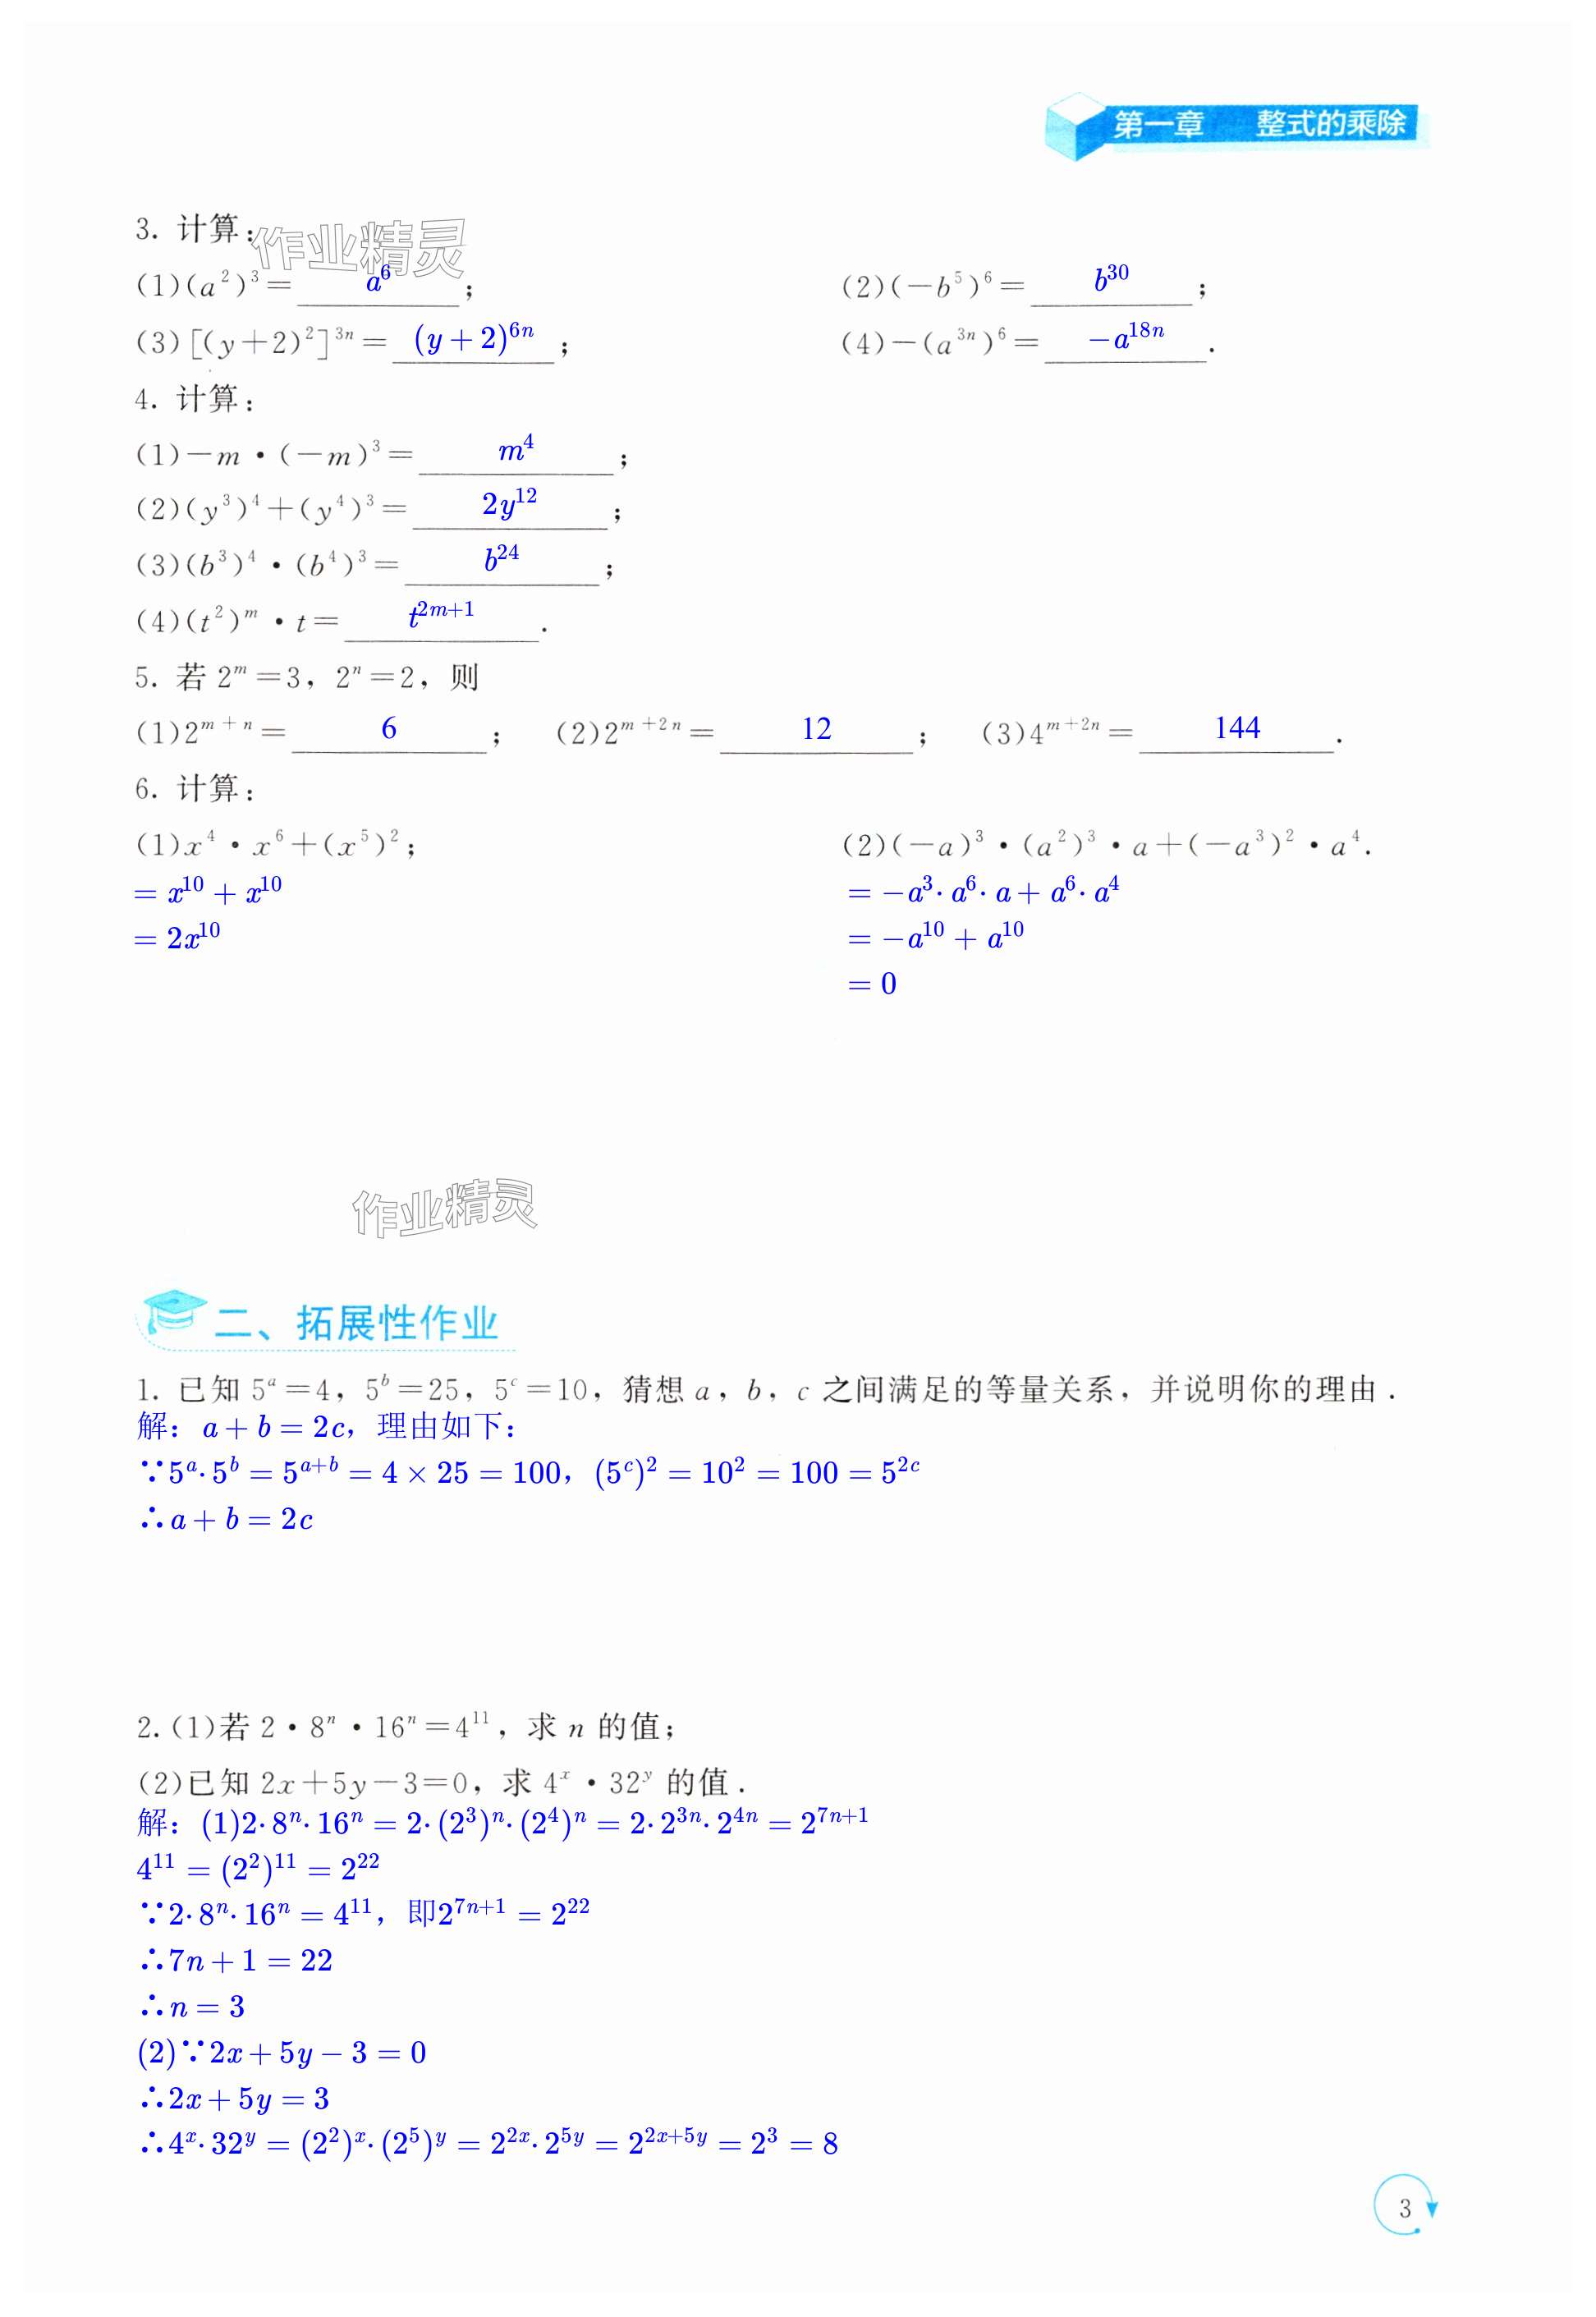 第一章 整式的乘除
3. 计算:
作业精灵
(1)(a²)³=a⁶; (2)(−b⁵)⁶=b³⁰;
(3)[(y+2)²]³ⁿ=(y+2)⁶ⁿ; (4)−(a³ⁿ)⁶=−a¹⁸ⁿ.
4. 计算:
(1)−m·(−m)³=m⁴;
(2)(y³)⁴+(y⁴)³=2y¹²;
(3)(b³)⁴·(b⁴)³=b²⁴;
(4)(t²)ᵐ·t=t²ᵐ⁺¹.
5. 若 2ᵐ=3, 2ⁿ=2, 则
(1)2ᵐ⁺ⁿ=6; (2)2ᵐ⁺²ⁿ=12; (3)4ᵐ⁺²ⁿ=144.
6. 计算:
(1)x⁴·x⁶+(x⁵)²; (2)(−a)³·(a²)³·a+(−a³)²·a⁴.
=x¹⁰+x¹⁰ =−a³·a⁶·a+a⁶·a⁴
=2x¹⁰ =−a¹⁰+a¹⁰
=0
作业精灵
二、拓展性作业
1. 已知 5ᵃ=4, 5ᵇ=25, 5ᶜ=10, 猜想 a, b, c 之间满足的等量关系, 并说明你的理由.
解: a+b=2c, 理由如下:
∵5ᵃ·5ᵇ=5ᵃ⁺ᵇ=4×25=100, (5ᶜ)²=10²=100=5²ᶜ
∴a+b=2c
2.(1)若 2·8ⁿ·16ⁿ=4¹¹, 求 n 的值;
(2)已知 2x+5y−3=0, 求 4ˣ·32ʸ 的值.
解: (1)2·8ⁿ·16ⁿ=2·(2³)ⁿ·(2⁴)ⁿ=2·2³ⁿ·2⁴ⁿ=2⁷ⁿ⁺¹
4¹¹=(2²)¹¹=2²²
∵2·8ⁿ·16ⁿ=4¹¹, 即2⁷ⁿ⁺¹=2²²
∴7n+1=22
∴n=3
(2)∵2x+5y−3=0
∴2x+5y=3
∴4ˣ·32ʸ=(2²)ˣ·(2⁵)ʸ=2²ˣ·2⁵ʸ=2²ˣ⁺⁵ʸ=2³=8
3